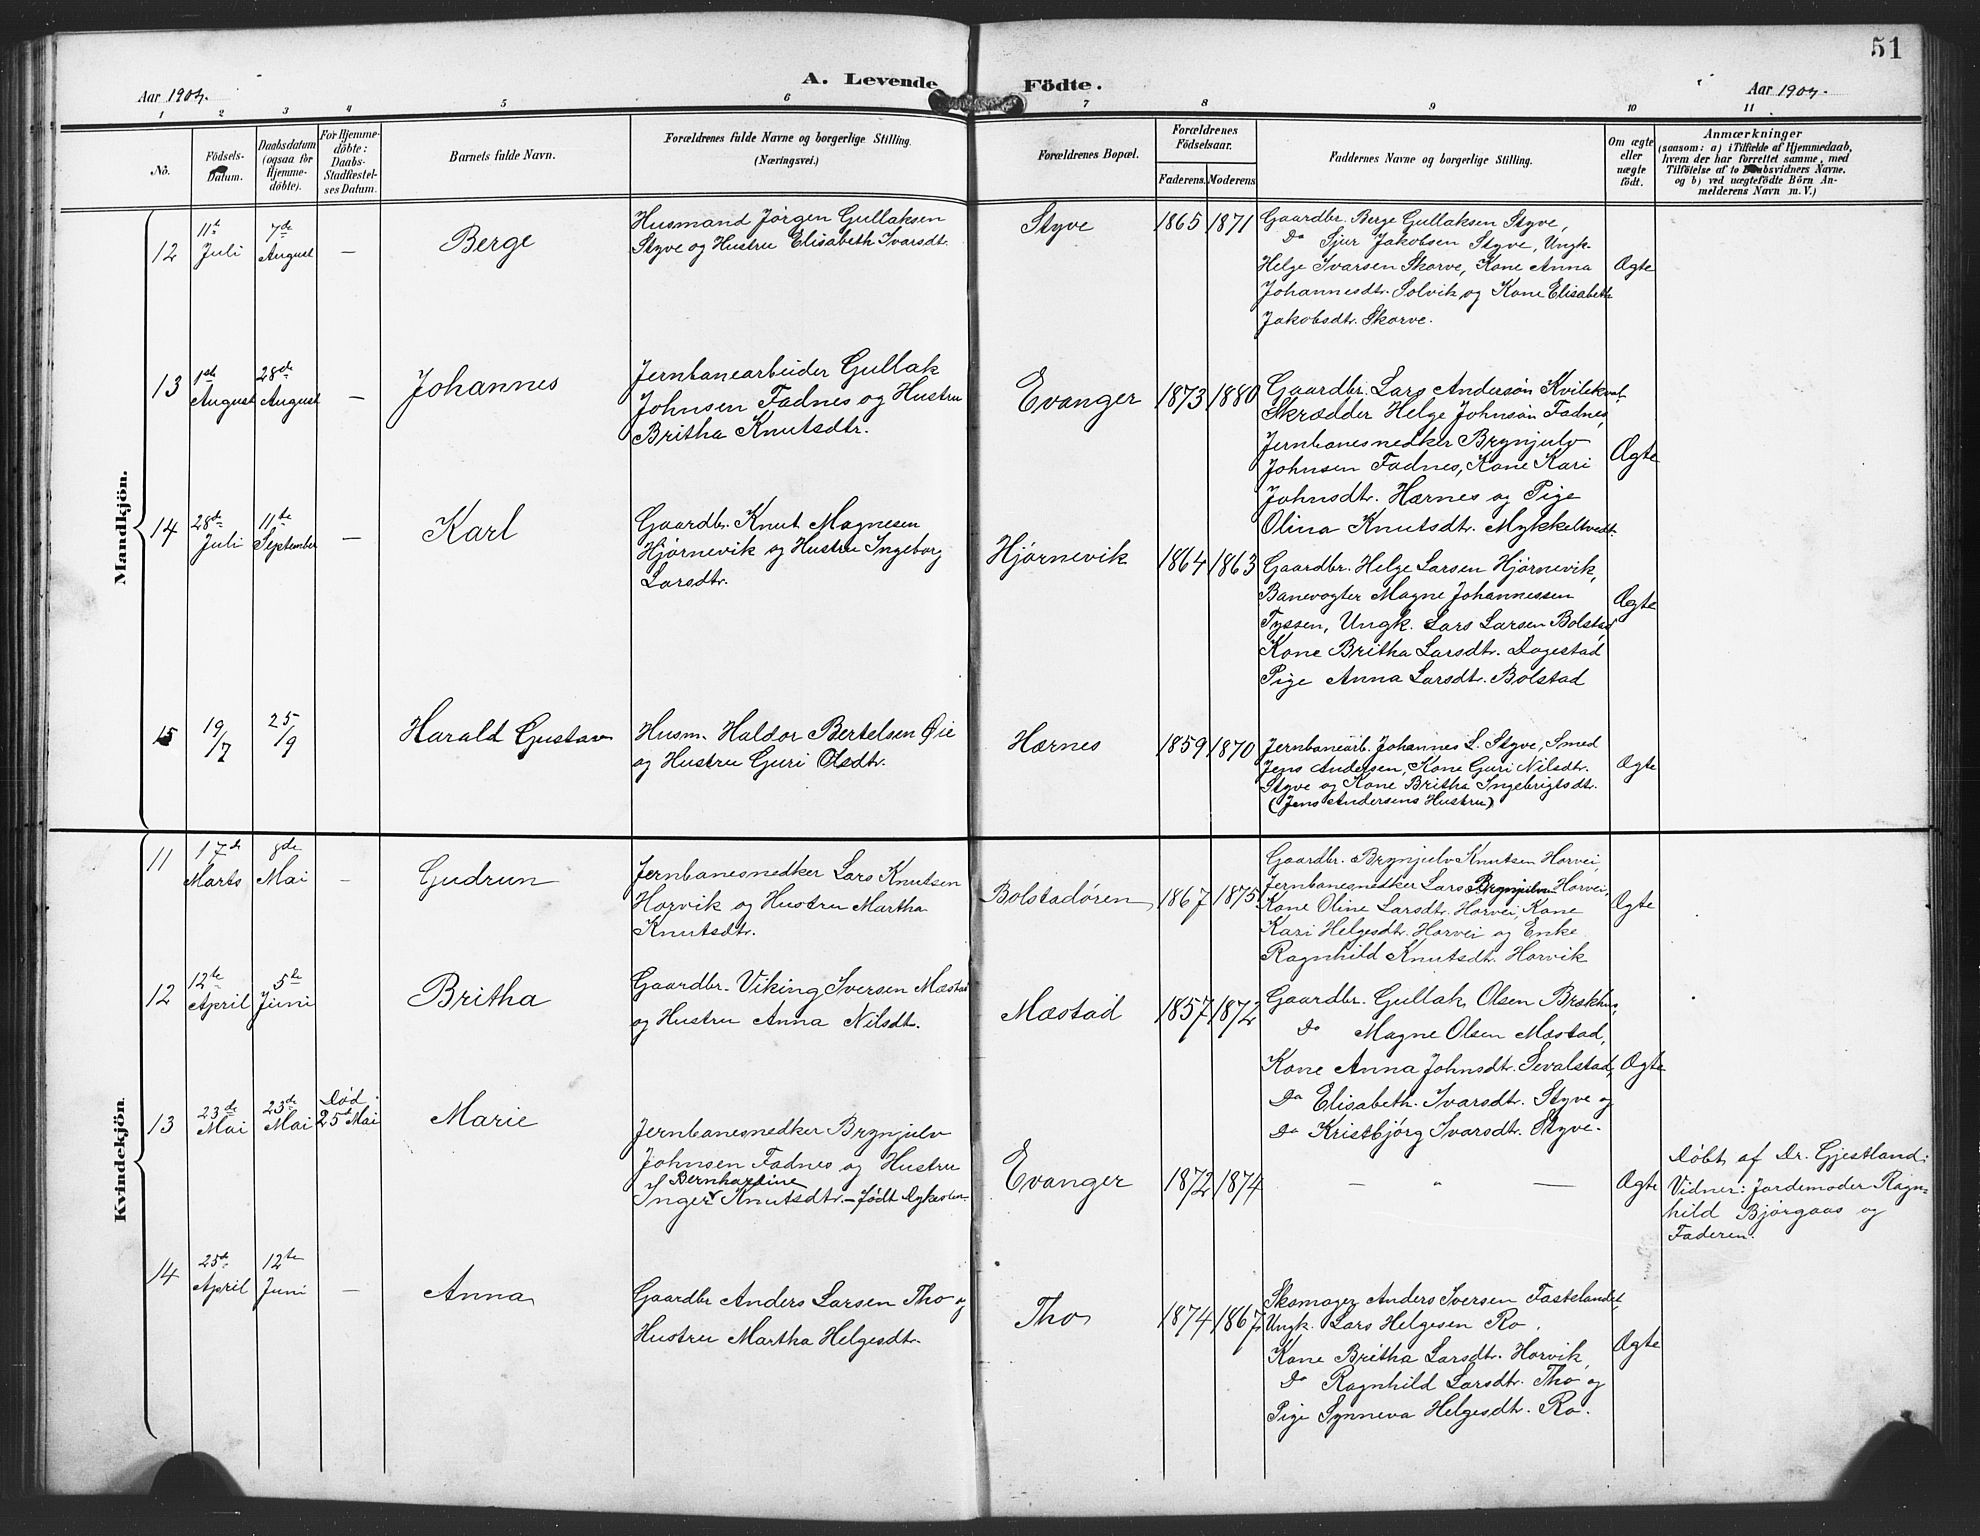 51
A. Levende Födte.
Aar 1904.
Aar 1904.
1 2 3 4 5 6 7 8 9 10 11
No.
Födsels-
Datum.
Daabsdatum
(ogsaa for
Hjemme-
döbte).
For Hjemme-
döbte:
Daabs-
Stadfestel-
ses Datum.
Barnets fulde Navn.
Forældrenes fulde Navne og borgerlige Stilling.
(Næringsvei.)
Forældrenes Bopæl.
Forældrenes
Födselsaar.
Faderens. Moderens
Faddernes Navne og borgerlige Stilling.
Om ægte
eller
uægte
födt.
Anmærkninger
(saasom: a) i Tilfælde af Hjemmedaab,
hvem der har forrettet samme, med
Tilföielse af to Daabsvidners Navne,
og b) ved uægtefödte Börn An-
melderens Navn m. V.)
Mandkjön.
12
11te
Juli
7de
August
—
Berge
Husmand Jørgen Gullaksen
Styve og Hustru Elisabeth Ivarsdt.
Styve
1865 1871
Gaardbr. Berge Gullaksen Styve,
Do Sjur Jakobsen Styve, Ungk.
Helge Ivarsen Skorve, Kone Anna
Johannesdtr. Solvik og Kone Elisabeth
Jakobsdtr. Skorve.
Ægte
13
1ste
August
28de
August
—
Johannes
Jernbanearbeider Gullak
Johnsen Fadnes og Hustru
Britha Knutsdtr.
Evanger
1873 1880
Gaardbr. Lars Andersøn Kvilekval
Skrædder Helge Johnsøn Fadnes,
Jernbanesnedker Brynjulv
Johnsen Fadnes, Kone Kari
Johnsdtr. Hærnes og Pige
Olina Knutsdtr. Mykkeltvedt.
Ægte
14
28de
Juli
11te
September
—
Karl
Gaardbr. Knut Magnesen
Hjørnevik og Hustru Ingeborg
Larsdtr.
Hjørnevik
1864 1863
Gaardbr. Helge Larsen Hjørnevik,
Banevogter Magne Johannessen
Fyssen, Ungk. Lars Larsen Bolstad
Kone Britha Larsdtr. Dagestad
Pige Anna Larsdtr. Bolstad
Ægte
15
19/7
25/9
Harald Gustav
Husm. Haldor Bertelsen Øie
og Hustru Guri Olsdtr.
Hærnes
1859 1870
Jernbanearb. Johannes L. Styve, Smed
Jens Andersen, Kone Guri Nilsdtr.
Styve og Kone Britha Ingebrigtsdtr.
(Jens Andersens Hustru)
Ægte
Kvindekjön.
11
17de
Marts
8de
Mai
—
Gudrun
Jernbanesnedker Lars Knutsen
Horvik og Hustru Martha
Knutsdtr.
Bolstadøren
1867 1875
Gaardbr. Brynjulv Knutsen Horvei,
Jernbanesnedker Lars Brynjulvsen Horvei,
Kone Oline Larsdtr. Horvei, Kone
Kari Helgesdtr. Horvei og Enke
Ragnhild Knutsdtr. Horvik
Ægte
12
12te
April
5te
Juni
Britha
Gaardbr. Viking Iversen Mæstad
og Hustru Anna Nilsdtr.
Mæstad
1857 1872
Gaardbr. Gullak Olsen Brækhus,
Do Magne Olsen Mæstad,
Kone Anna Johnsdtr. Sevalstad,
Do Elisabeth Ivarsdtr. Styve og
Do Kristbjørg Ivarsdtr. Styve.
Ægte
13
23de
Mai
23de
Mai
Død
25de Mai
Marie
Jernbanesnedker Brynjulv
Johnsen Fadnes og Hustru
Bernhartine
Inger Knutsdtr. — født Dyke
Evanger
1872 1874
— " —
Ægte
Døbt af Dr. Gjestland.
Vidner: Jordemoder Ragn-
hild Bjørgaas og
Faderen.
14
25de
April
12te
Juni
—
Anna
Gaardbr Anders Larsen Tho og
Hustru Martha Helgesdtr.
Tho
1874 1867
Skomager Anders Iversen Fastelandet
Ungk. Lars Helgesen Ro.
Kone Britha Larsdtr. Horvik,
Do Ragnhild Larsdtr. Tho og
Pige Synneva Helgesdtr. Ro.
Ægte